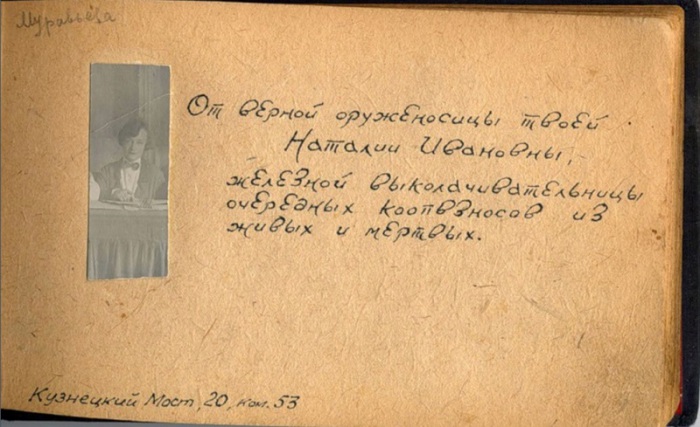 Муравьёва
От верной оруженосицы твоей
Наталии Ивановны,
железной выколачивательницы
очередных коопвзносов из
живых и мертвых.
Кузнецкий Мост, 20, ком. 53